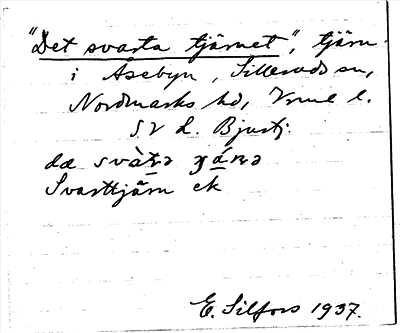 "Det svarta tjärnet", tjärn
i Åsebyn, Sillerud sn,
Nordmarks hd, Vrml l.
S V d. Bjurtj.
dæ svàtə
Svarttjärn ek
E. Silfors 1937.